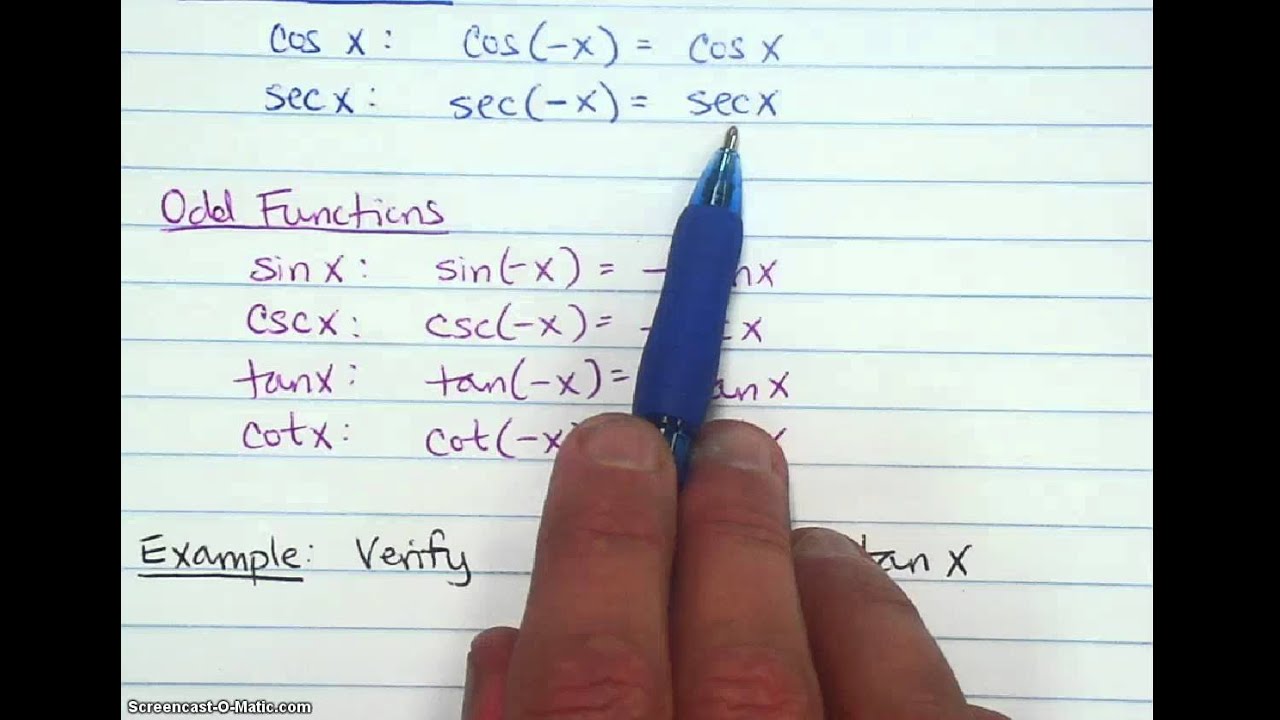 cos x: cos(-x) = cos x
sec x: sec(-x) = sec x
Odd Functions
sin x: sin(-x) = - x
csc x: csc(-x) = x
tan x: tan(-x) = an x
cot x: cot(-x
Example: Verify tan x
Screencast-O-Matic.com